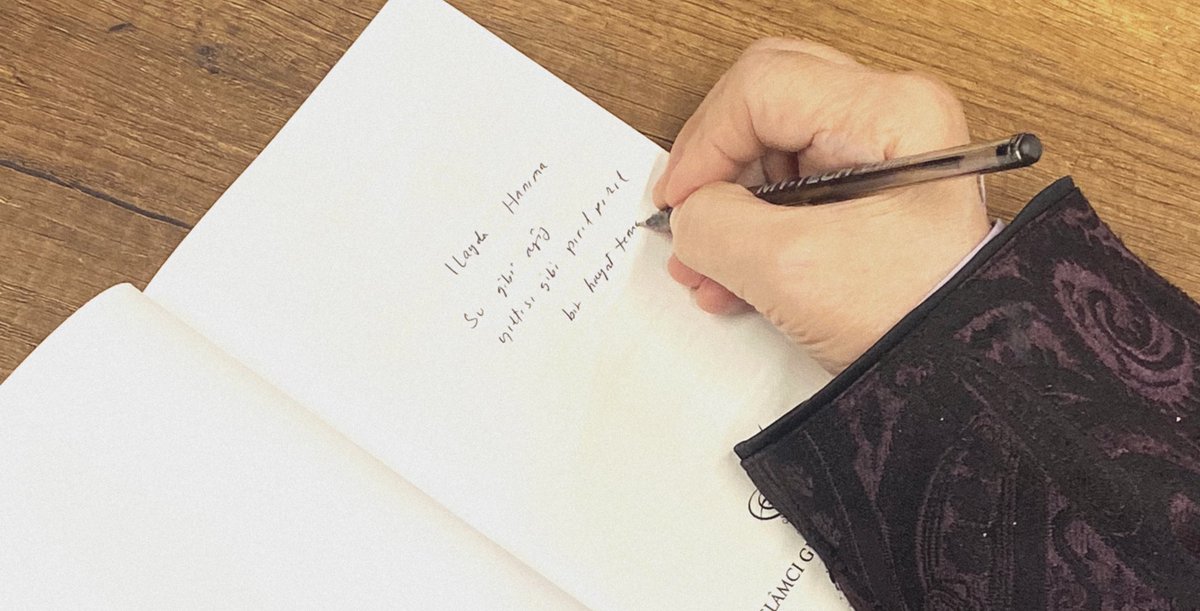 Ilayda Hanıma
Su gibi
gibi pırıl pırıl
bir hayat tem
MY-TECH
LÂMCI G